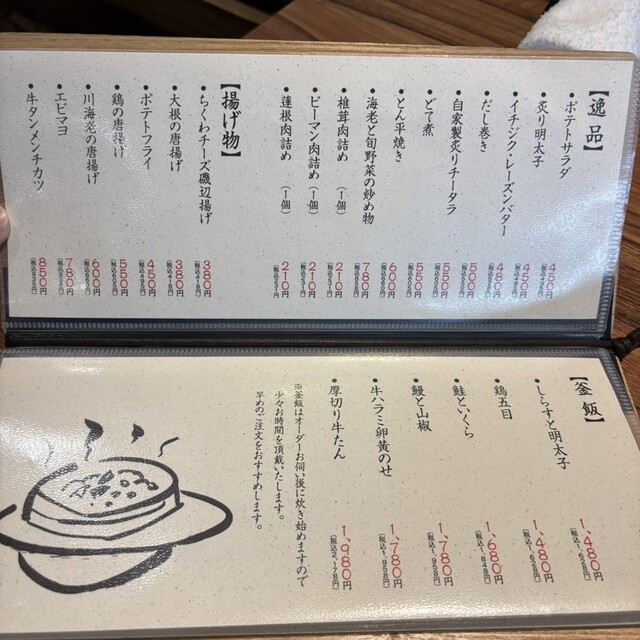 【逸品】
●ポテトサラダ 450円（税込495円）
●炙り明太子 450円（税込495円）
●イチジク・レーズンバター 480円（税込528円）
●だし巻き 500円（税込550円）
●自家製炙りチータラ 550円（税込605円）
●どて煮 550円（税込605円）
●とん平焼き 600円（税込660円）
●海老と旬野菜の炒め物 780円（税込858円）
●椎茸肉詰め（1個） 210円（税込231円）
●ピーマン肉詰め（1個） 210円（税込231円）
●蓮根肉詰め（1個） 210円（税込231円）
【揚げ物】
●ちくわチーズ磯辺揚げ 380円（税込418円）
●大根の唐揚げ 380円（税込418円）
●ポテトフライ 450円（税込495円）
●鶏の唐揚げ 550円（税込605円）
●川海老の唐揚げ 600円（税込660円）
●エビマヨ 780円（税込858円）
●牛タンメンチカツ 850円（税込935円）
【釜飯】
●しらすと明太子 1,480円（税込1,628円）
●鶏五目 1,480円（税込1,628円）
●鮭といくら 1,680円（税込1,848円）
●鰻と山椒 1,780円（税込1,958円）
●牛ハラミ卵黄のせ 1,780円（税込1,958円）
●厚切り牛たん 1,980円（税込2,178円）
※釜飯はオーダーお伺い後に炊き始めますので
少々お時間を頂戴いたします。
早めのご注文をおすすめします。